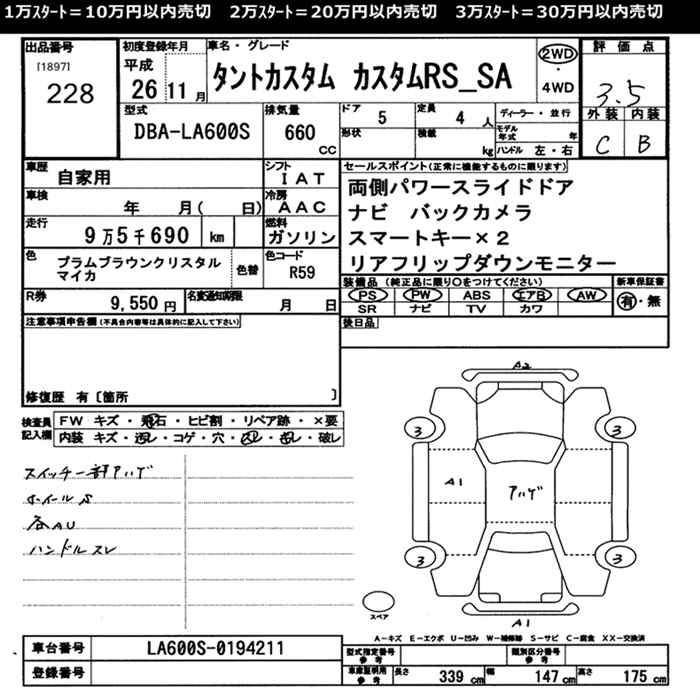 1万スタート＝10万円以内売切　2万スタート＝20万円以内売切　3万スタート＝30万円以内売切
出品番号 [1897] 228
初度登録年月 平成 26 11 月
車名・グレード タントカスタム カスタムRS_SA
2WD ・ 4WD
評価点 3.5
外装 内装
C B
型式 DBA-LA600S
排気量 660 CC
ドア 5 定員 4 人
形状 積載 kg
ディーラー・並行
モデル年式 年
ハンドル 左・右
車歴 自家用
シフト IAT
車検 年 月( 日)
冷房 AAC
走行 9万5千690 km
燃料 ガソリン
色 プラムブラウンクリスタルマイカ
色替
色コード R59
R券 9,550円
名変通知期限 月 日
セールスポイント(正常に機能するものに限ります)
両側パワースライドドア
ナビ バックカメラ
スマートキー×2
リアフリップダウンモニター
装備品(純正品に限り○をつけてください)
新車保証書
PS PW ABS エアB AW
SR ナビ TV カワ
有・無
後日品
注意事項申告欄(不具合内容等は具体的に記入して下さい)
修復歴 有〔箇所 〕
検査員記入欄
FW キズ・飛石・ヒビ割・リペア跡・×要
内装 キズ・汚れ・コゲ・穴・スレ・キレ・破レ
スイッチ一部ハゲ
ホイールS
各AU
ハンドルスレ
A2
3 3
A1 ハゲ
3 3
スペア
A1
A－キズ E－エクボ U－凹み W－補修跡 S－サビ C－腐食 XX－交換済
車台番号 LA600S-0194211
登録番号
型式指定番号 参考
類別区分番号 参考
車庫証明用参考 長さ 339 cm 幅 147 cm 高さ 175 cm